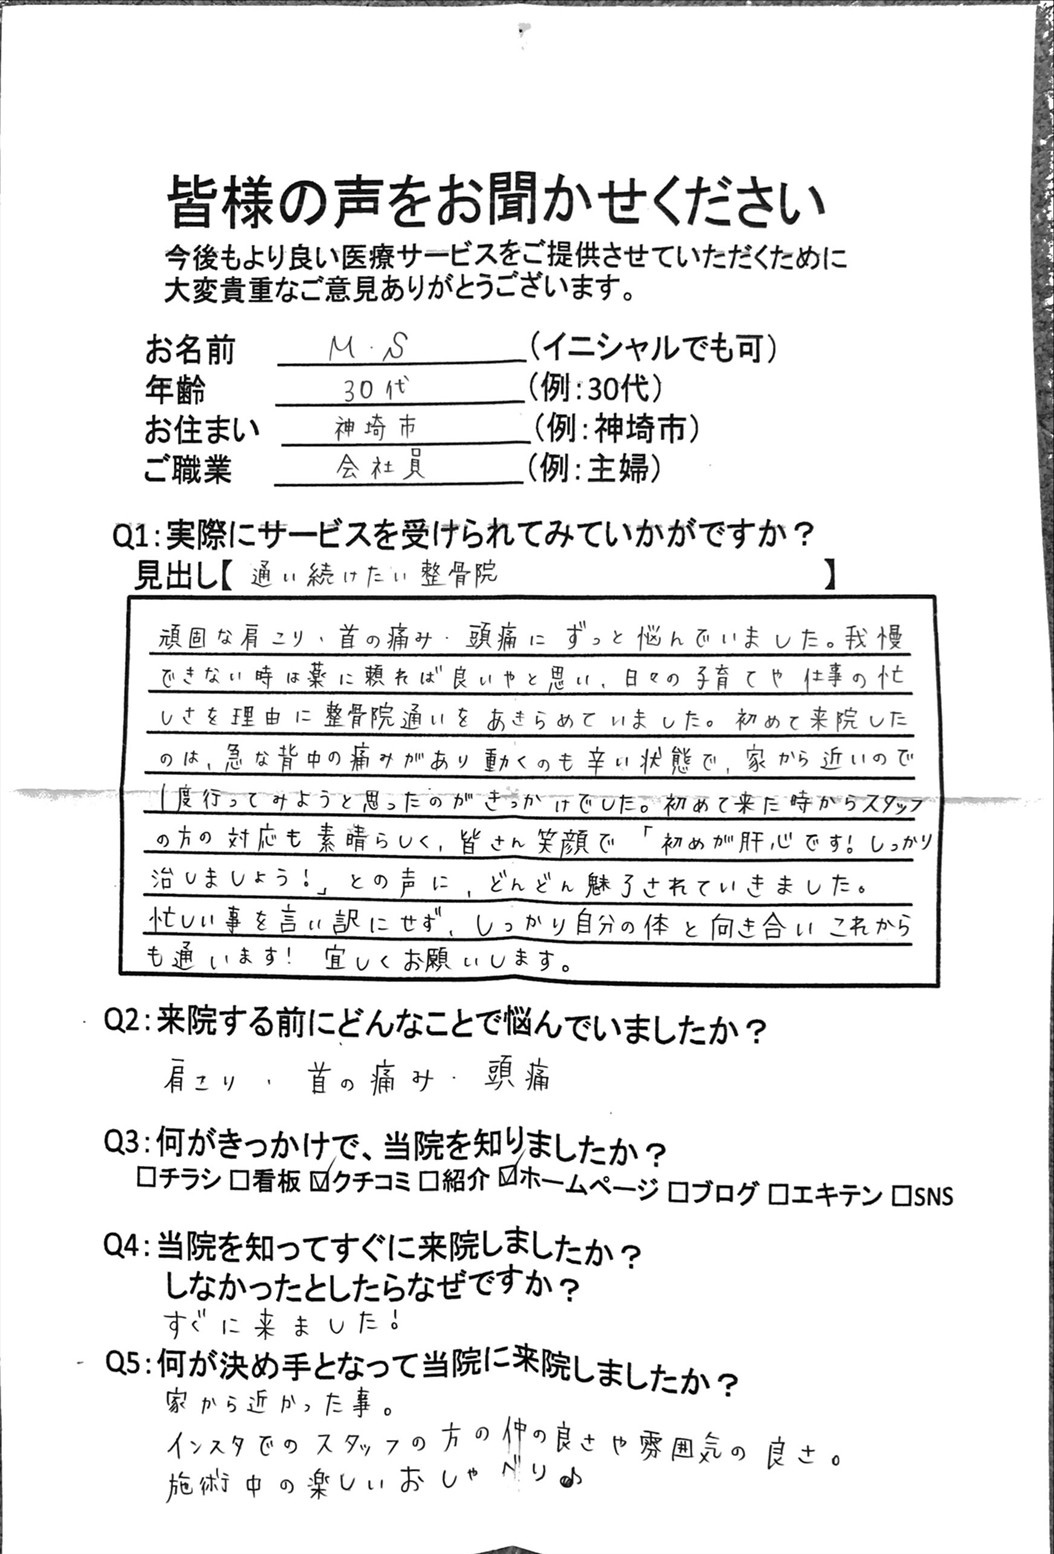 皆様の声をお聞かせください
今後もより良い医療サービスをご提供させていただくために
大変貴重なご意見ありがとうございます。
お名前 M.S (イニシャルでも可)
年齢 30代 (例:30代)
お住まい 神埼市 (例:神埼市)
ご職業 会社員 (例:主婦)
Q1:実際にサービスを受けられてみていかがですか?
見出し【 通い続けたい整骨院 】
頑固な肩こり、首の痛み・頭痛にずっと悩んでいました。我慢
できない時は薬に頼れば良いやと思い、日々の子育てや仕事の忙
しさを理由に整骨院通いをあきらめていました。初めて来院した
のは、急な背中の痛みがあり動くのも辛い状態で、家から近いので
1度行ってみようと思ったのがきっかけでした。初めて来た時からスタッフ
の方の対応も素晴らしく、皆さん笑顔で「初めが肝心です!しっかり
治しましょう!」との声に、どんどん魅了されていきました。
忙しい事を言い訳にせず、しっかり自分の体と向き合いこれから
も通います! 宜しくお願いします。
Q2:来院する前にどんなことで悩んでいましたか?
肩こり、首の痛み・頭痛
Q3:何がきっかけで、当院を知りましたか?
□チラシ □看板 ☑クチコミ □紹介 ☑ホームページ □ブログ □エキテン □SNS
Q4:当院を知ってすぐに来院しましたか?
しなかったとしたらなぜですか?
すぐに来ました!
Q5:何が決め手となって当院に来院しましたか?
家から近かった事。
インスタでのスタッフの方の仲の良さや雰囲気の良さ。
施術中の楽しいおしゃべり♪